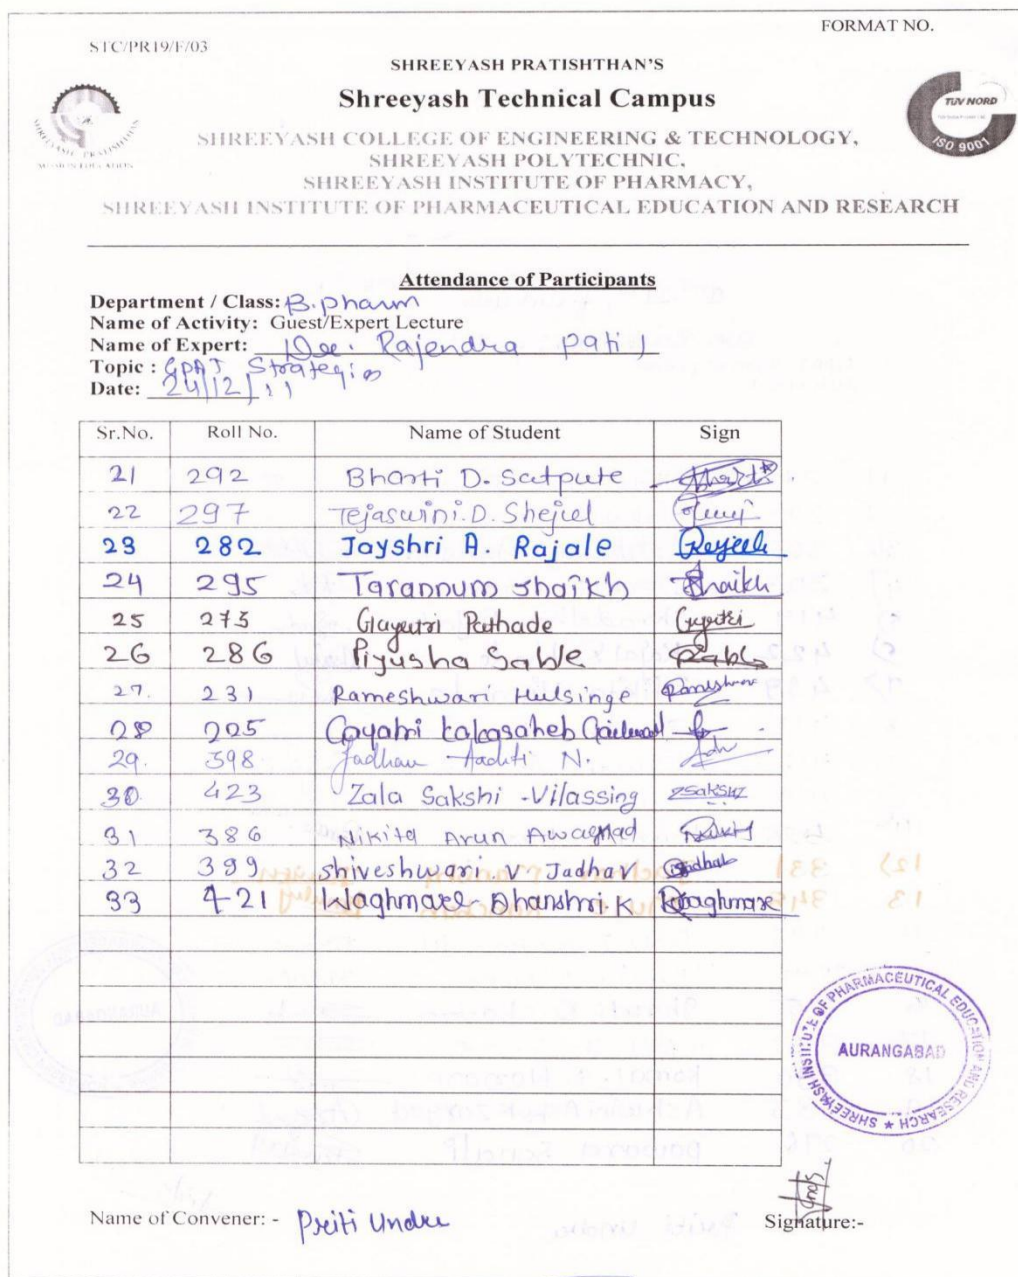 FORMAT NO.
STC/PR19/F/03
SHREEYASH PRATISHTHAN'S
Shreeyash Technical Campus
SHREEYASH COLLEGE OF ENGINEERING & TECHNOLOGY,
SHREEYASH POLYTECHNIC,
SHREEYASH INSTITUTE OF PHARMACY,
SHREEYASH INSTITUTE OF PHARMACEUTICAL EDUCATION AND RESEARCH
SHREEYASH PRATISHTHAN
TUV NORD
ISO 9001
Attendance of Participants
Department / Class: B.pharm
Name of Activity: Guest/Expert Lecture
Name of Expert: Rajendra patil
Topic : GPAT Strategies
Date: 24/12/
Sr.No. Roll No. Name of Student Sign
21 292 Bharti D. Satpute
22 297 Tejaswini.D. Shejul
23 282 Jayshri A. Rajale
24 295 Tarannum shaikh Shaikh
25 275 Gayatri Pathade Gayatri
26 286 Piyusha Sable Sable
27. 231 Rameshwari Hulsinge Rameshwari
28 225 Gayatri
29. 398 Jadhav N.
30 423 Zala Sakshi -Vilassing
31 386 Nikita Arun Awaghad
32 399 shiveshwari. V. Jadhav Jadhav
33 421 Waghmare Dhanshri K Waghmare
SHREEYASH INSTITUTE OF PHARMACEUTICAL EDUCATION AND RESEARCH
AURANGABAD
Name of Convener: - Priti Undre
Signature:-